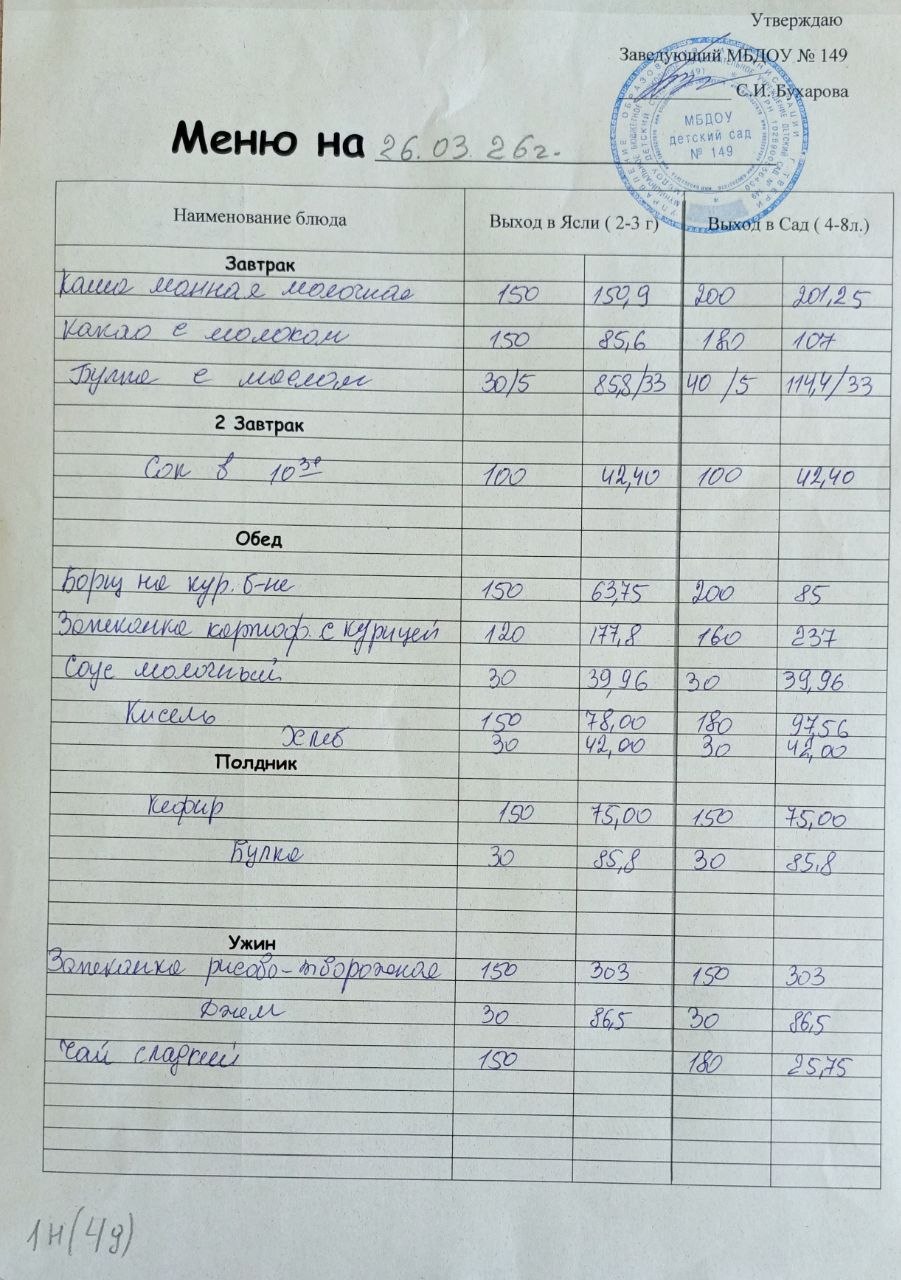 Утверждаю
Заведующий МБДОУ № 149
С.И. Бухарова
МБДОУ
детский сад
№ 149
Меню на 26.03.26г.
Наименование блюда Выход в Ясли ( 2-3 г) Выход в Сад ( 4-8л.)
Завтрак
Каша манная молочная 150 150,9 200 201,25
Какао с молоком 150 85,6 180 107
Булка с маслом 30/5 85,8/33 40/5 114,4/33
2 Завтрак
Сок в 10³⁰ 100 42,40 100 42,40
Обед
Борщ на кур. б-не 150 63,75 200 85
Запеканка картоф. с курицей 120 177,8 160 237
Соус молочный 30 39,96 30 39,96
Кисель 150 78,00 180 97,56
Хлеб 30 42,00 30 42,00
Полдник
Кефир 150 75,00 150 75,00
Булка 30 85,8 30 85,8
Ужин
Запеканка рисово-творожная 150 303 150 303
Джем 30 86,5 30 86,5
Чай сладкий 150 180 25,75
1н(4д)